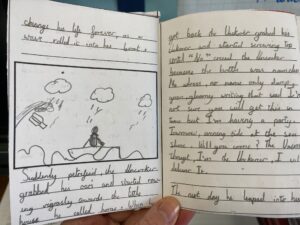 change his life forever, as a
wave rolled it into his boat.
Suddenly petrified, the Unknower
grabbed his oars and started row-
ing vigorously towards the little
house he called home. When he
got back the Unknower grabbed his
and started screwing top
until "Pop" the
because the bottle was
No stress, no name only damp
gray gloomy writing that said I'm
not sure you will get this in
time but I'm having a party.
Tomorrow, evening tide at the sea
shore. Will you come? The
thought, I'm the Unknower, I will
deliver it.
The next day he hopped into his